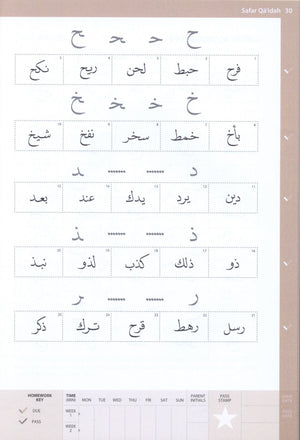 Safar Qā'idah 30
ح ـحـ حـ ـح
1 فرح 2 حبط 3 لحن 4 ريح 5 نكح
خ ـخـ خـ ـخ
6 بأخ 7 خمط 8 سخر 9 نفخ 10 شيخ
د ········ ········ ـد
11 دين 12 يرد 13 يدك 14 عند 15 بعد
ذ ········ ········ ـذ
16 ذو 17 ذلك 18 كذب 19 لذو 20 نبذ
ر ········ ········ ـر
21 رسل 22 رهط 23 قرح 24 ترك 25 ذكر
HOMEWORK KEY
DUE
PASS
TIME (MIN) MON TUE WED THU FRI SAT SUN
WEEK 1
WEEK 2
PARENT INITIALS
PASS STAMP